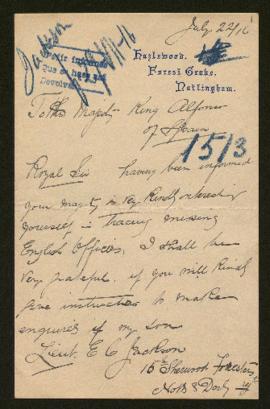 July 22/16
Jackson
Hazlewood.
Forest Grove.
Nottingham.
To His Majesty King Alfonso
of Spain
1513
Royal Sir having been informed
your majesty is very kindly interesting
yourself in tracing missing
English Officers, I shall be
very grateful if you will kindly
give instructions to make
enquires of my son
Lieut. E C Jackson
15th Sherwood Foresters
Notts & Derby